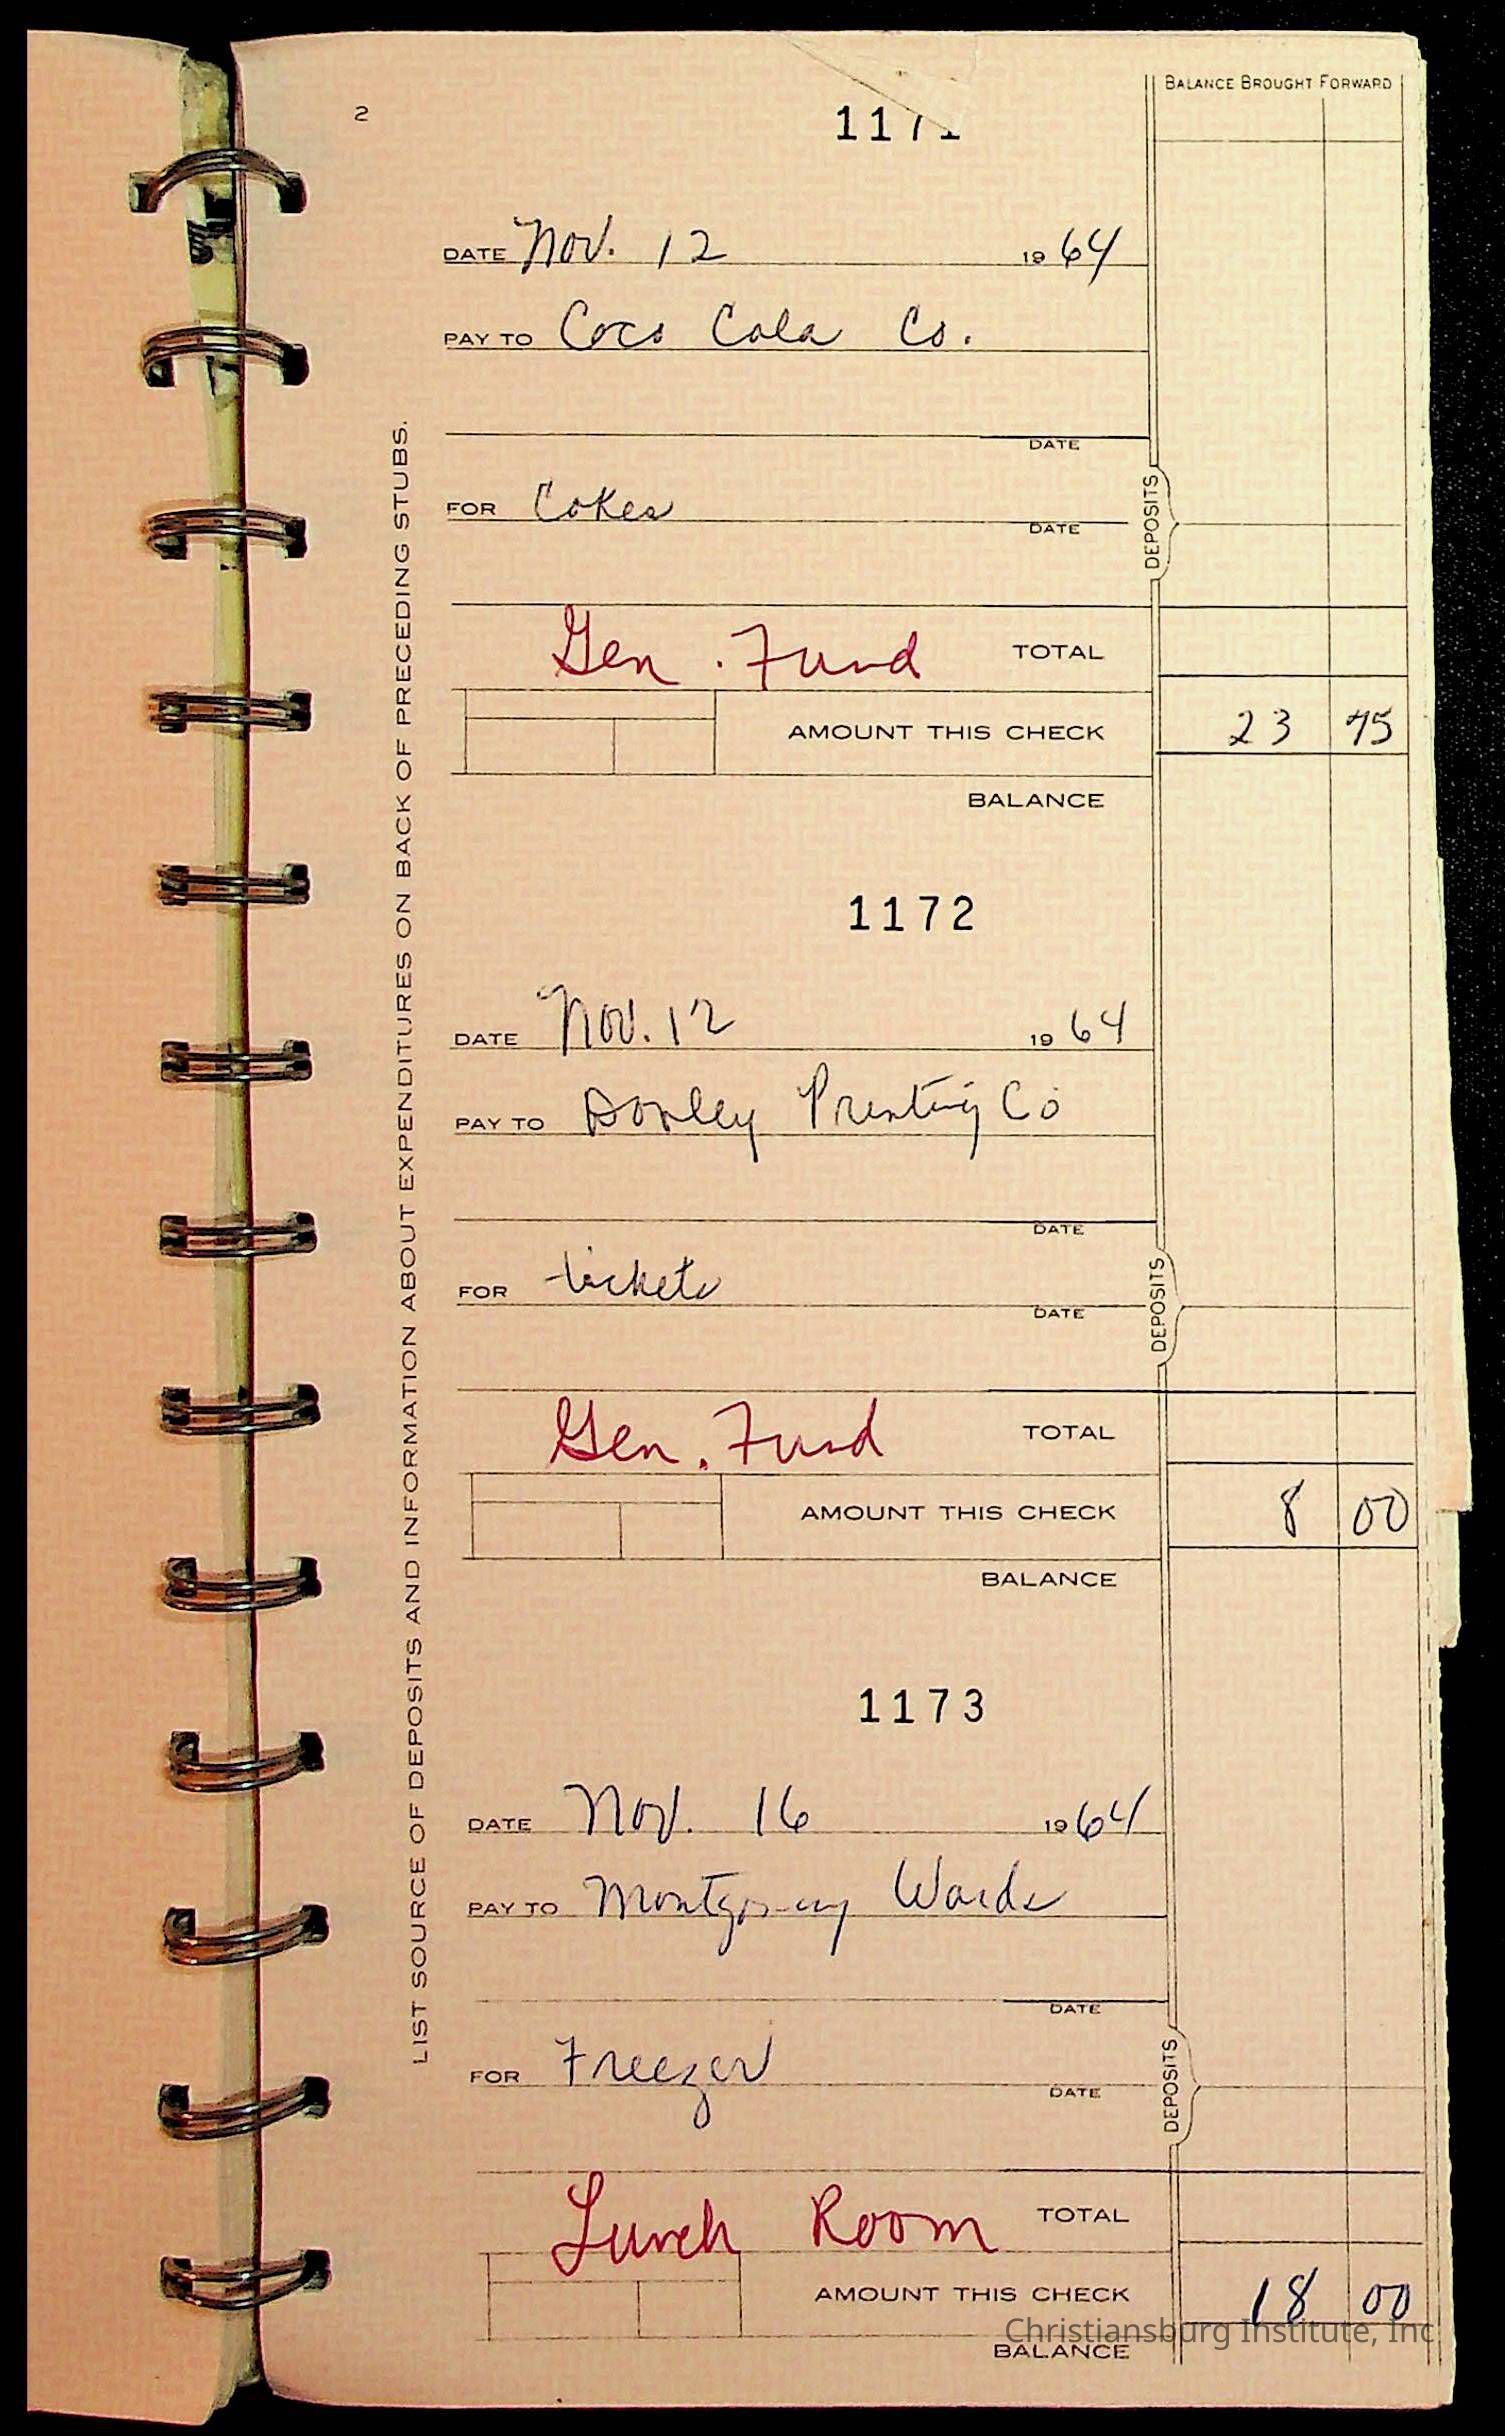 BALANCE BROUGHT FORWARD
2
1171
DATE Nov. 12 1964
PAY TO Coca Cola Co.
DATE
FOR Cokes
DATE
DEPOSITS
Gen. Fund TOTAL
AMOUNT THIS CHECK 23 75
BALANCE
1172
DATE Nov. 12 1964
PAY TO Printing Co
DATE
FOR tickets
DATE
DEPOSITS
Gen. Fund TOTAL
AMOUNT THIS CHECK 8 00
BALANCE
1173
DATE Nov. 16 1964
PAY TO Montgomery Wards
DATE
FOR Freezer
DATE
DEPOSITS
Lunch Room TOTAL
AMOUNT THIS CHECK 18 00
BALANCE
LIST SOURCE OF DEPOSITS AND INFORMATION ABOUT EXPENDITURES ON BACK OF PRECEDING STUBS.
Christiansburg Institute, Inc